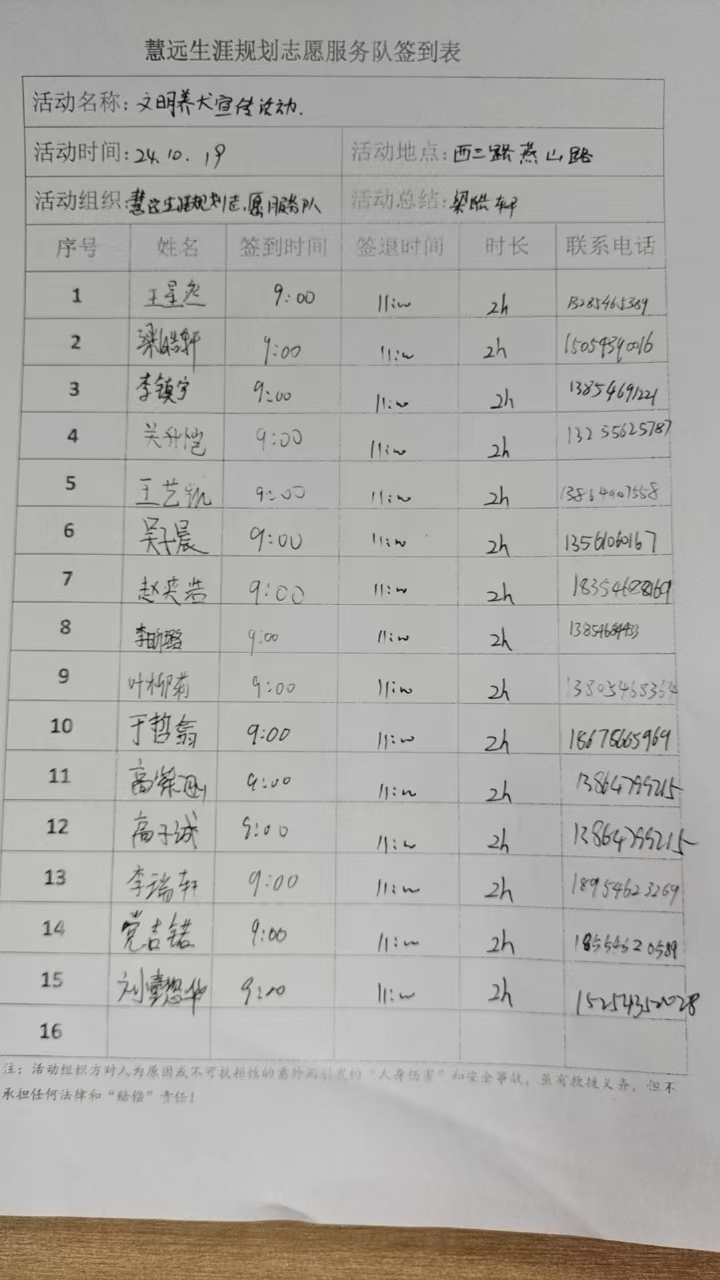 慧远生涯规划志愿服务队签到表
活动名称：文明养犬宣传活动.
活动时间：24.10.19 活动地点：西二路燕山路
活动组织：慧远生涯规划志愿服务队 活动总结：梁皓轩
序号 姓名 签到时间 签退时间 时长 联系电话
1 王星 9:00 11:00 2h 13285465389
2 梁皓轩 9:00 11:00 2h 15054390016
3 李镇宇 9:00 11:00 2h 13854691221
4 关升恺 9:00 11:00 2h 13255625787
5 王艺凯 9:00 11:00 2h
6 吴子晨 9:00 11:00 2h 13561060167
7 赵奕浩 9:00 11:00 2h
8 李昕璐 9:00 11:00 2h
9 叶柳菊 9:00 11:00 2h 13805465364
10 于哲翕 9:00 11:00 2h 18678665969
11 高 9:00 11:00 2h 13864799215
12 高子诚 9:00 11:00 2h 13864799215
13 李瑞轩 9:00 11:00 2h 18954623269
14 党吉锘 9:00 11:00 2h 18554620589
15 刘 9:00 11:00 2h 15254352028
16
注：活动组织方对人为原因或不可抗拒性的意外而引发的“人身伤害”和安全事故，虽有救援义务，但不
承担任何法律和“赔偿”责任！